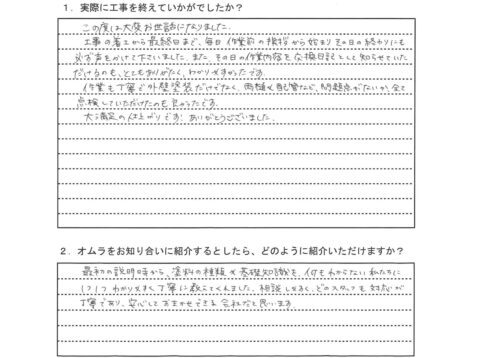 １．実際に工事を終えていかがでしたか？
この度は大変お世話になりました。
工事の着工から最終日まで、毎日作業前の挨拶から始まりその日の終わりにも
必ず声をかけて下さいました。また、その日の作業内容を交換日記として知らせていた
だけるのも、とてもありがたく、わかりやすかったです。
作業も丁寧で外壁塗装だけでなく、雨樋や配管など、問題点がないか全て
点検していただけたのも良かったです。
大満足の仕上がりです！ありがとうございました。
２．オムラをお知り合いに紹介するとしたら、どのように紹介いただけますか？
最初の説明時から、塗料の種類や基礎知識を、何もわからない私たちに
1つ1つわかりやすく丁寧に教えてくれました。相談しやすく、どのスタッフも対応が
丁寧であり、安心しておまかせできる会社だと思います。